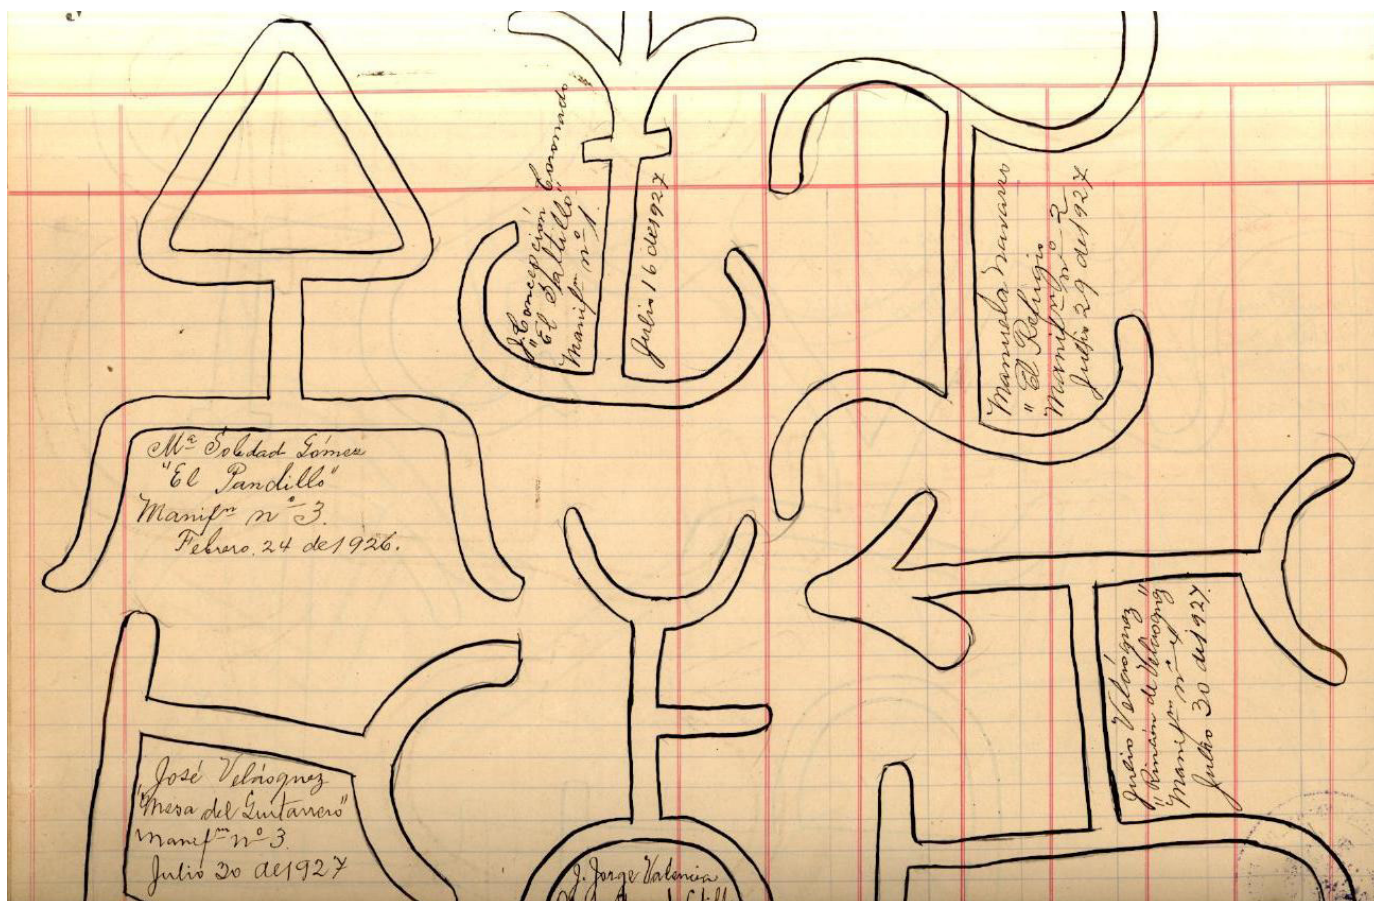 Mª Soledad Gómez
"El Pandillo"
Manifᵐ nº 3.
Febrero, 24 de 1926.
J. Concepción Coronado
"El Saltillo"
Manifᵐ nº 1.
Julio 16 de 1927
Manuela Navarro
"El Refugio
Manifᵐ nº 2
Julio 29 de 1927
José Velásquez
"Mesa del Guitarrero"
Manifᵐ nº 3
Julio 30 de 1927
J. Jorge Valencia
Julio Velásquez
"Rincón de Velásquez"
Manifᵐ nº
Julio 30 de 1927.